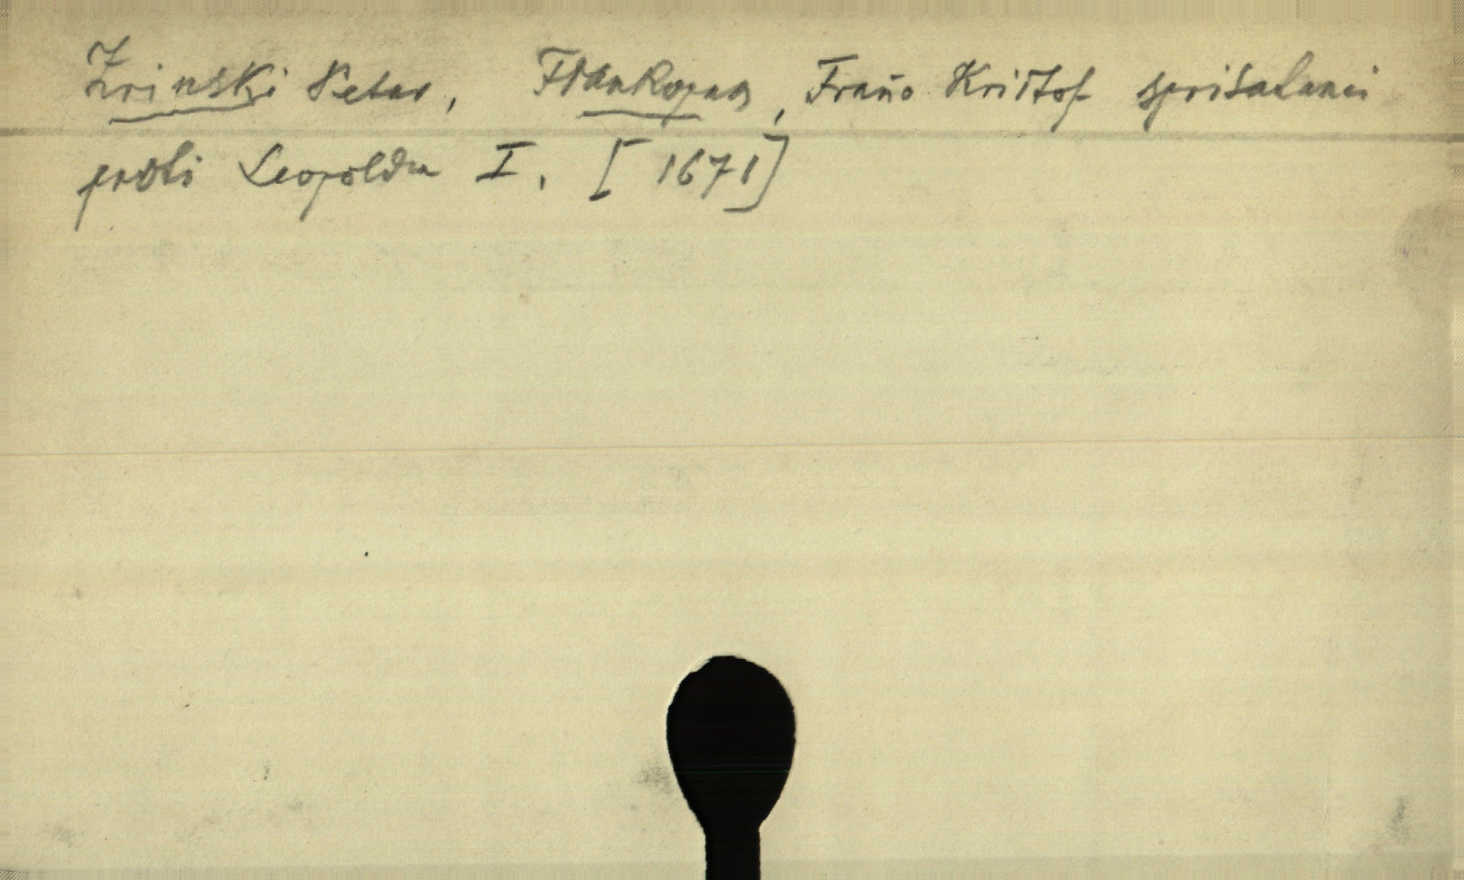 Zrinski Petar, Frankopan, Fraño Krištof sprisahanci
proti Leopoldu I. [1671]